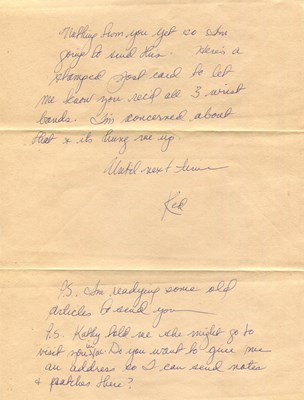 Nothing from you yet so I'm
going to send this. Here's a
stamped post card to let
me know you rec'd all 3 wrist
bands. I'm concerned about
that & its hung me up.
Until next time
P.S. I'm readying some old
articles to send you
P.S. Kathy told me she might go to
visit you Do you want to give me
an address so I can send notes
& patches there?